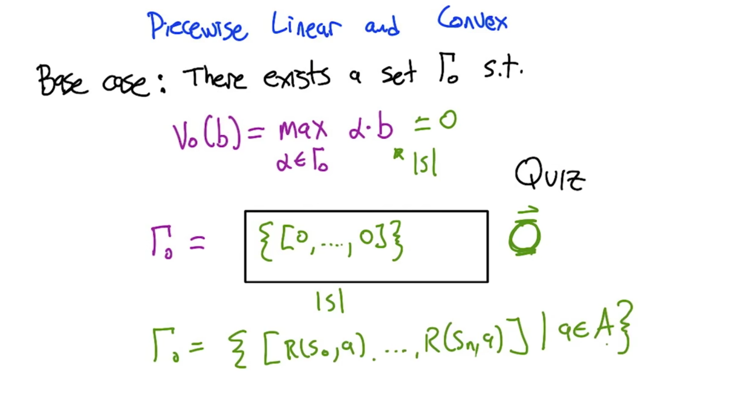 Piecewise Linear and Convex
Base case: There exists a set Γ₀ s.t.
V₀(b) = max α·b = 0
α∈Γ₀
|s|
Quiz
Γ₀ = {[0,...,0]}
0⃗
|s|
Γ₀ = {[R(s₀,a),...,R(sₙ,a)] | a∈A}